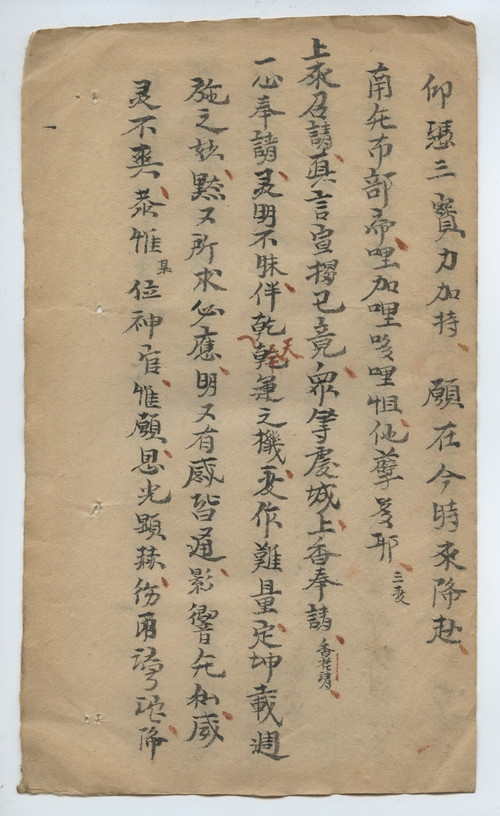 仰憑三寳力加持願在今時來降赴
南无布部帝哩加哩哆哩怛他孽多耶三変
上來召請真言宣揚已竟衆等虔城上香奉請香花請
一心奉請灵明不昧伴乾乾天運之機变作難量定坤載週
施之妙黙又所求必應明又有感皆通影響无私感
灵不爽恭惟某位神官惟願恩光顯赫仿 降